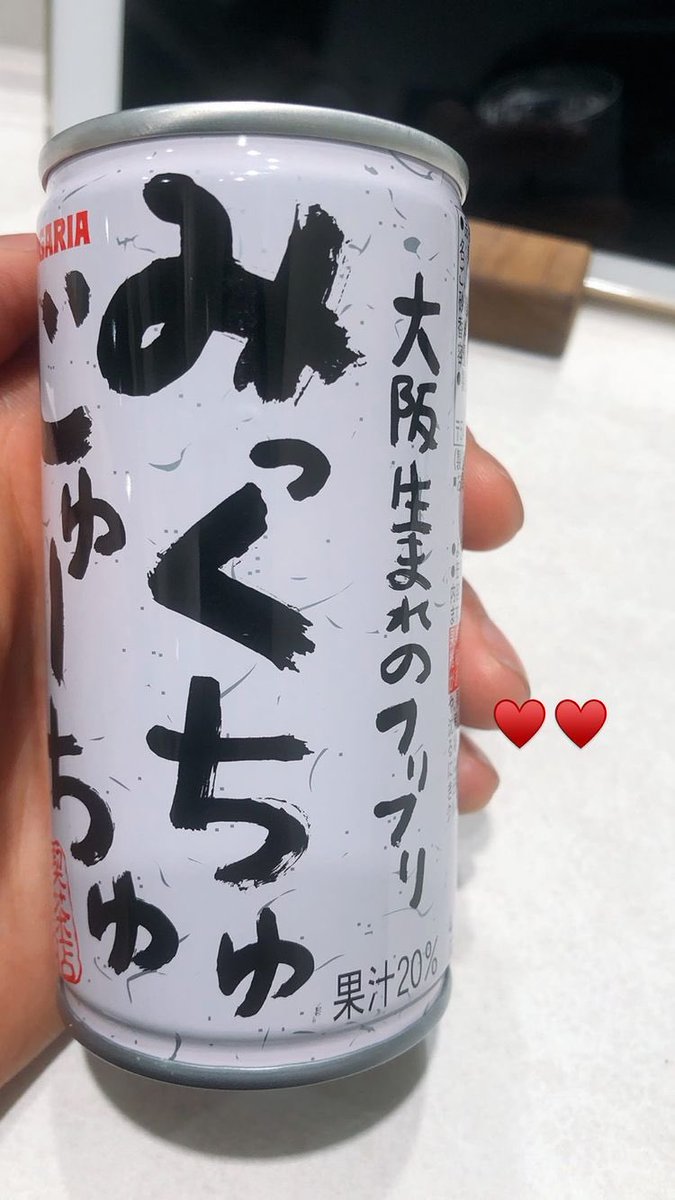 SARIA
みっくちゅ
じゅーちゅ
大阪生まれのフリフリ
果汁20%